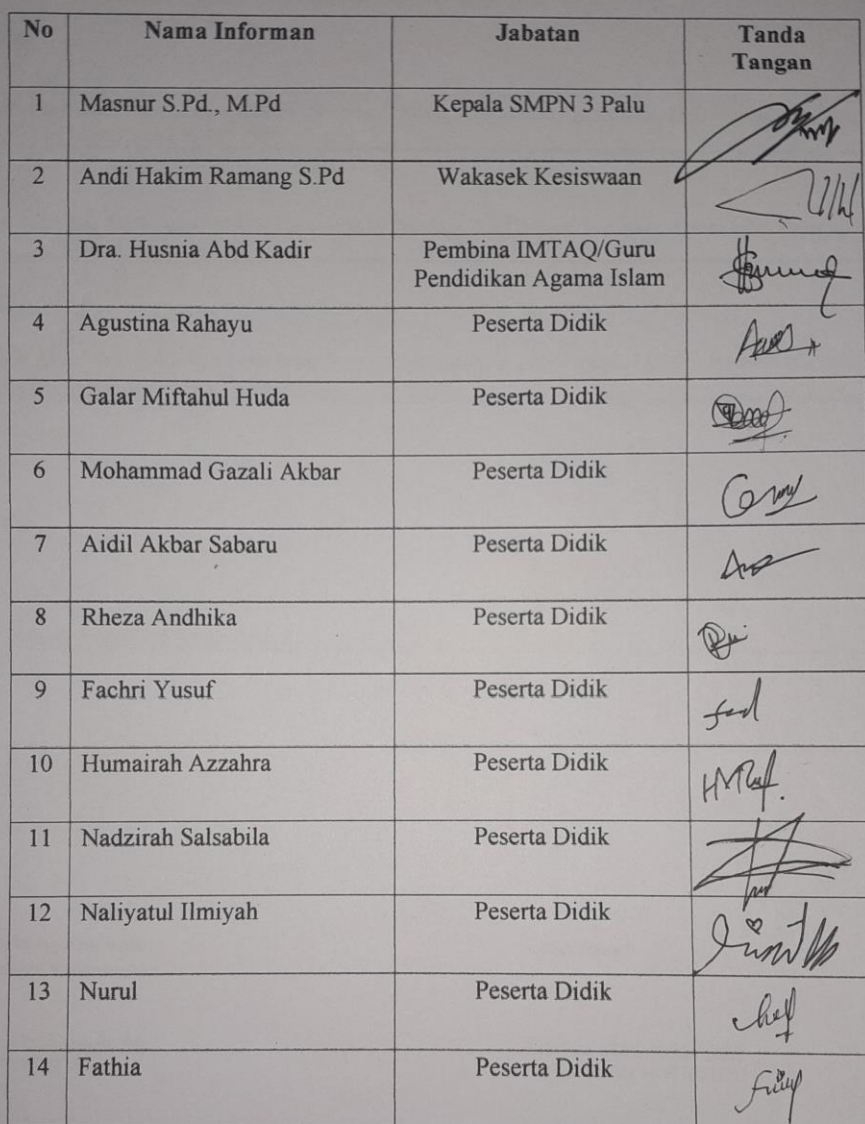 No Nama Informan Jabatan Tanda
Tangan
1 Masnur S.Pd., M.Pd Kepala SMPN 3 Palu
2 Andi Hakim Ramang S.Pd Wakasek Kesiswaan
3 Dra. Husnia Abd Kadir Pembina IMTAQ/Guru
Pendidikan Agama Islam
4 Agustina Rahayu Peserta Didik
5 Galar Miftahul Huda Peserta Didik
6 Mohammad Gazali Akbar Peserta Didik
7 Aidil Akbar Sabaru Peserta Didik
8 Rheza Andhika Peserta Didik
9 Fachri Yusuf Peserta Didik
10 Humairah Azzahra Peserta Didik
11 Nadzirah Salsabila Peserta Didik
12 Naliyatul Ilmiyah Peserta Didik
13 Nurul Peserta Didik
14 Fathia Peserta Didik